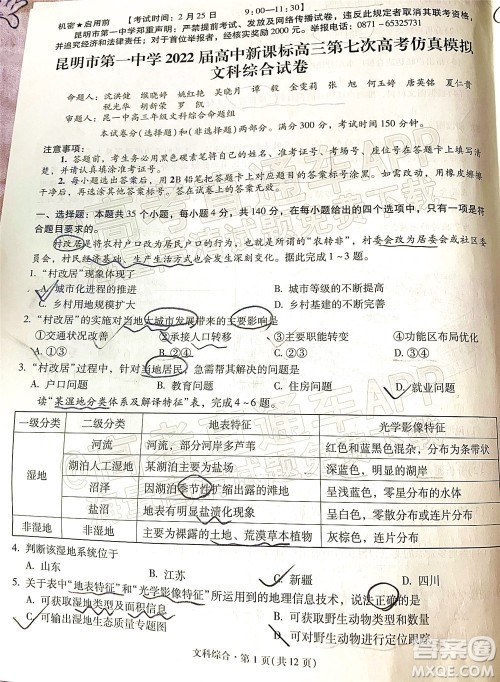 机密★启用前
【考试时间：2月25日
9:00—11:30】
昆明市第一中学郑重声明：严禁提前考试、发放及网络传播试题。违反规定者，昆明市第一中学将取消其联考资格，
并追究经济和法律责任；对于协查举报者，经核实奖励2000元。举报电话：0871-65325731
昆明市第一中学2022届高中新课标高三第七次高考仿真模拟
文科综合试卷
命题人：沈洪健
姚红艳 吴晓月 谭 毅 金雯莉 张 旭 何玉婷 唐英铭 夏仁贵
祝光华 胡新荣 罗 凯
审题人：昆一中高三年级文科综合命题组
本试卷分(选择题)和(非选择题)两部分。满分300分，考试时间150分钟。
注意事项：
1. 答题前，考生务必用黑色碳素笔将自己的姓名、准考证号、考场号、座位号填写在答题卡上，并认
真填涂准考证号。
2. 每小题选出答案后，用2B铅笔把答题卡上对应题目的答案标号涂黑。如需改动，用橡皮擦擦
干净后，再选涂其他答案标号。在试卷上作答的答案无效。
一、选择题：本题共35个小题，每小题4分，共140分，在每小题给出的四个选项中，只有一项是符
合题目要求的。
村改居是将农村户口改为居民户口的行为，也就是所谓的“农转非”，村委会改为居委会或社区委
员会，农村的生产生活方式也发生深刻变化。据此完成1～3题。
1. “村改居”现象体现了
A. 城市化进程的推进
B. 城市等级的不断提高
C. 乡村用地规模扩大
D. 乡村基建的不断完善
2. “村改居”的实施对当地大城市发展带来的主要影响是
①交通状况改善 ②承接人口转移 ③生态环境改善 ④功能区布局优化
A. ①③ B. ②④ C. ②③ D. ①④
3. “村改居”过程中，针对当地居民，急需帮其解决的问题是
A. 户口问题 B. 教育问题 C. 住房问题 D. 就业问题
读“某湿地分类体系及解译特征表”。据此完成4～6题。
一级分类 二级分类 地表特征 光学影像特征
湿地 河流 河流，部分河岸多芦苇 红色和蓝黑色混杂，分布为条带状
湖泊人工湿地 某湖泊主要为咸水 深蓝色，呈明显斑块状
沼泽 因湖泊季节性扩张露的滩地 呈浅蓝色，零星、条带状分布
盐沼 地表有明显盐渍化现象 呈白色，零散分布或呈条带状
非湿地 非湿地 主要为裸露的土地、荒漠草本植物 灰白色、红色，明显块状分布
4. 判断该湿地系统位于
A. 山东 B. 江苏 C. 新疆 D. 四川
5. 关于表中“地表特征”和“光学影像特征”所运用到的地理信息技术，说法正确的是
A. 可获取湿地类型及面积信息 B. 可对野生动物数量进行统计
C. 可输出湿地生态质量专题图 D. 可对野生动物类型和位置进行跟踪
文科综合·第1页(共12页)
答案圈
MXQE.COM